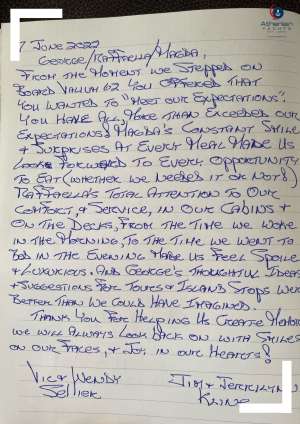 Athenian
YACHTS
7 June 2022
George/Raffaella/Magda,
From the moment we stepped on
board Valium 62 you offered that
you wanted to "meet our expectations".
You have all, more than exceeded our
expectations! Magda's constant smile
& surprises at every meal made us
look forward to every opportunity
to eat (whether we needed it or not!)
Raffaella's total attention to our
comfort, & service, in our cabins &
on the decks, from the time we woke
in the morning, to the time we went to
bed in the evening made us feel spoile
& luxurious. And George's thoughtful ideas
& suggestions for tours & island stops were
better than we could have imagined.
Thank you for helping us create memori
we will always look back on with smiles
on our faces, & joy in our hearts!
Vic & Wendy
Sellier
Jim & Jerrilynn
Kline